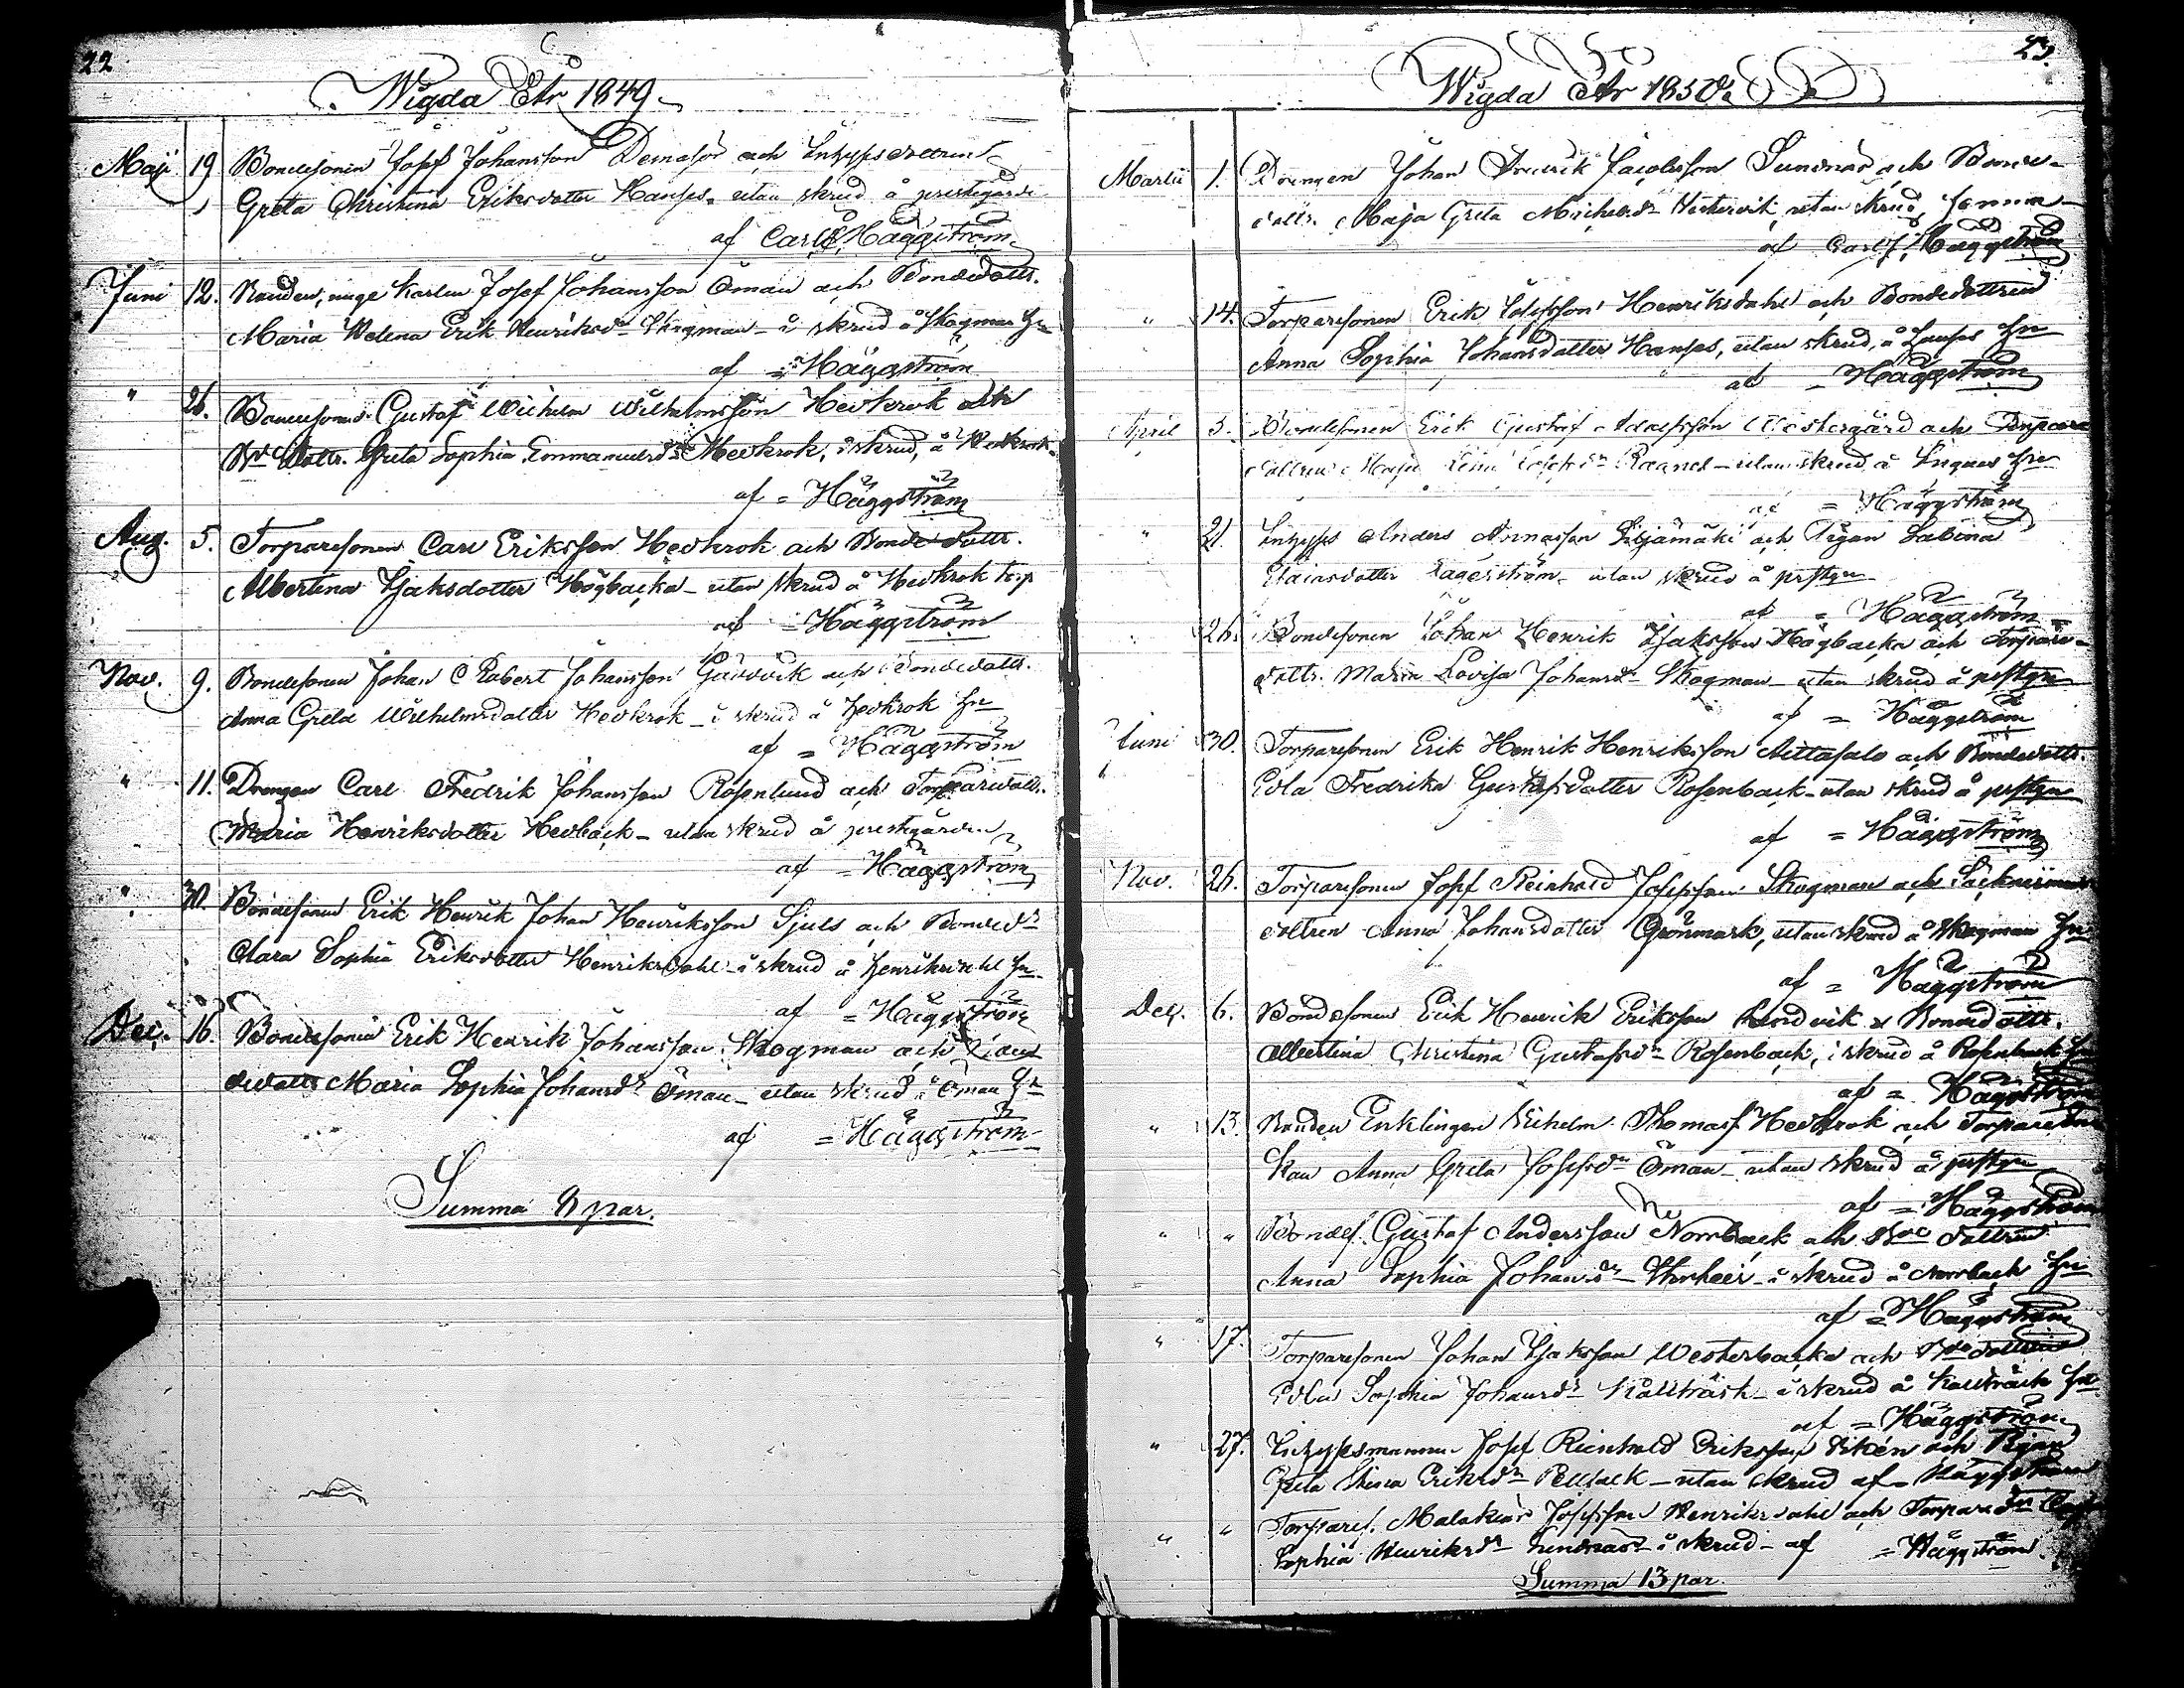 22
Wigda År 1849.
Maji 19 Bondesonen Josef Johansson Demasör och Inhysesdottren
Greta Christina Eriksdotter Hanses, utan skrud å prestgården
af Carl J. Häggström
Juni 12. Bonden, unge karlen Josef Johansson Öman och Bondedottr.
Maria Helena Erik Henriksdr Skogman i skrud å Skogman hn
af = Häggström
" 26. Bondesonen Gustaf Wilhelm Wilhelmsson Hedkrok och
Bde Dottr. Greta Sophia Emmanuelsdr Hedkrok, i skrud, å Hedkrok
af = Häggström
Aug. 5. Torparesonen Carl Eriksson Hedkrok och Bonde dottr.
Albertina Isaksdotter Högbacka - utan skrud å Hedkrok torp
af = Häggström
Nov. 9. Bondesonen Johan Robert Johansson Gävdvik och Bondedottr.
Anna Greta Wilhelmsdotter Hedkrok - i skrud å Hedkrok hn
af = Häggström
" 11. Drengen Carl Fredrik Johansson Rosenlund och Torparedottr.
Maria Henriksdotter Hedback - utan skrud å prestgården
af = Häggström
" 30. Bondesonen Erik Henrik Johan Henriksson Sjuls och Bondedr
Clara Sophia Eriksdotter Henriksdahl - i skrud å Henriksdahl hn
af = Häggström
Dec. 16. Bondesonen Erik Henrik Johansson Skogman och
dedottr Maria Sophia Johansdr Öman - utan skrud å Öman hn
af = Häggström
Summa 8 par.
23.
Wigda År 1850.
Martii 1. Drengen Johan Fredrik Jacobsson Sundnäs och Bonde-
dottr. Maja Greta Michelsdr Westervik, utan skrud, hemma
af Carl J. Häggström
" 14. Torparesonen Erik Josefsson Henriksdahl och Bondedottren
Anna Sophia Johansdotter Hanses, utan skrud, å Hanses hn
af = Häggström
April 3. Bondesonen Erik Gustaf Adolfsson Westergård och Torpare
dottren Maja Lena Josefsdr Ragnel - utan skrud å hn
af = Häggström
" 21. Inhyses Anders Annasson Liljamäki och Pigan Sabina
Eliaisdotter Lagerström - utan skrud å prstgn
af = Häggström
" 26. Bondesonen Johan Henrik Isaksson Högbacka och Torpare-
dottr. Maria Lovisa Johansdr Skogman - utan skrud å prstgn
af = Häggström
Juni 30. Torparesonen Erik Henrik Henriksson Aittasalo och Bondedottr.
Edla Fredrika Gustafsdotter Rosenback - utan skrud å prstgn
af = Häggström
Nov. 26. Torparesonen Josef Reinhold Josefsson Skogman och
dottren Anna Johansdotter Grönmark, utan skrud å Skogman hn
af = Häggström
Dec. 6. Bondesonen Erik Henrik Eriksson Nordvik & Bondedottr.
Albertina Christina Gustafsdr Rosenback, i skrud å Rosenback hn
af = Häggström
" 13. Bonden Enklingen Wilhelm Thomass Hedkrok och Torpare
kan Anna Greta Josefsdr Öman - utan skrud å prstgn
af = Häggström
" " Bondes. Gustaf Andersson Norrback och Bde dottren
Anna Sophia Johansdr Storkeir - i skrud å Norrback hn
af = Häggström
" 17. Torparesonen Johan Isaksson Westerbacka och Bde dottren
Edla Sophia Johansdr Kallträsk - i skrud å Kallträsk hn
af = Häggström
" 27. Inhysesmannen Josef Reinhold Eriksson Wikén och Pigan
Greta Stina Eriksdr Pellback - utan skrud af = Häggström
" " Torpares. Malakias Josefsson Henriksdahl och Torpare dr
Sophia Henriksdr Sundnäs - i skrud - af = Häggström
Summa 13 par.